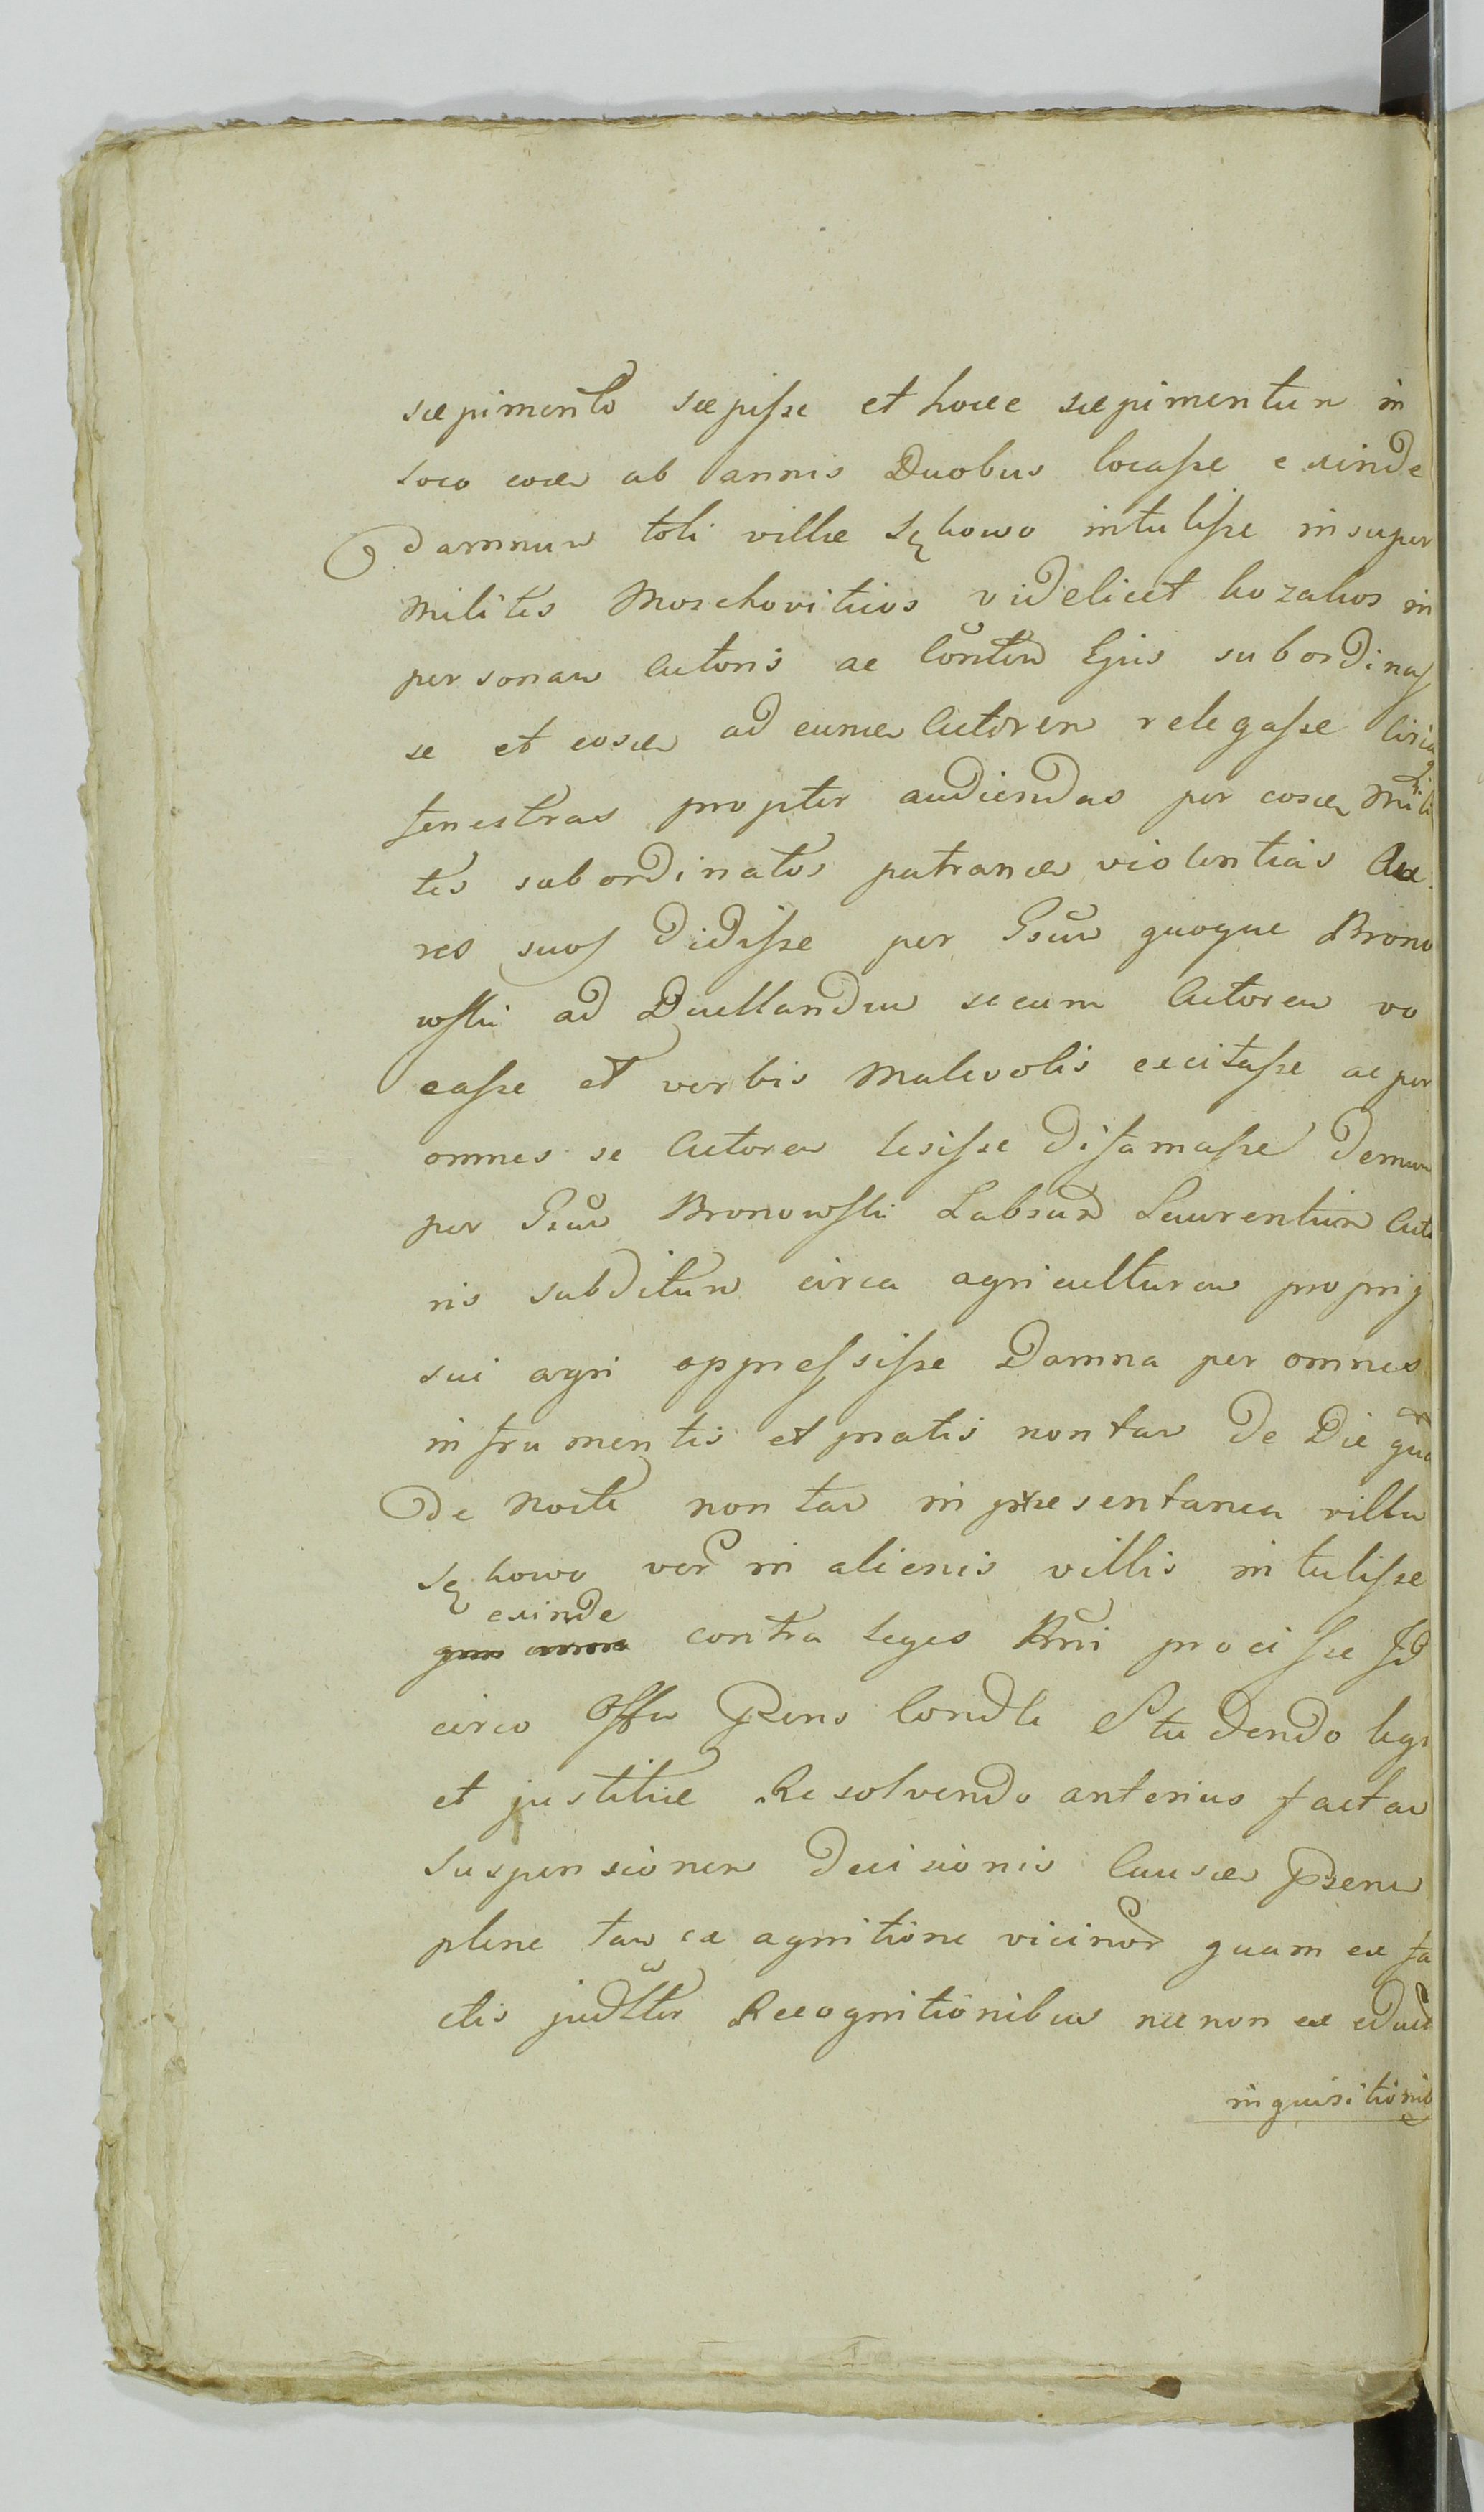 sæpimento sæpisse et hocce sæpimentum in
loco eodem ab annis Duobus locasse exinde
damnum toti villæ Sękowo intulisse insuper
milites Moschoviticos videlicet kozakos in
personam Actoris ac Conthm Ejus subordinas
se et eosdem ad eundem Actorem relegasse circa
fenestras propter audiendas per eosdem Mili
tes subordinatos patrandas violentias Au
res suas dedisse per Gsum quoque Brono
wski ad Duellandum secum Actorem vo
casse et verbis malevolis excitasse ac per
omnes se Actorem lesisse difamasse Demum
per Gsum Bronowski Labsum Laurentium Acto
ris subditum circa agriculturam proprij
sui agri oppressisse Damna per omnes
in frumentis et pratis non tam de Die qua
De nocte non tam in præsentanea villa
Sękowo ver in alienis villis intulisse
exinde
contra leges Rni procisse Id
circo Offm Pens Condle Studendo legi
et justitiæ Resolvendo anterius factam
suspensionem Decisionis Causæ Psene
plene tam ex agnitione vicinor quam ex fa
ctis judltter Recognitionibus nec non ex educt
inquisitionib